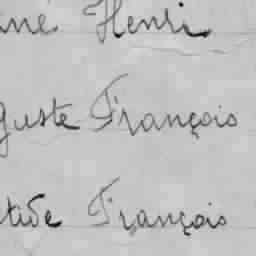 né Henri
guste François
tave François